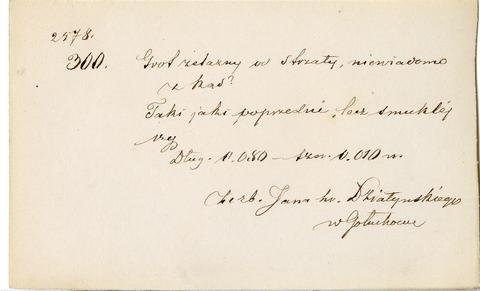 2578.
300. Grot żelazny od strzały, niewiadomo
z kąd?
Taki jaki poprzednie, lecz smuklej
szy
Dług. 0.080 – Szer. 0.010 m.
Ze zb. Jana hr. Działyńskiego
w Gołuchowie